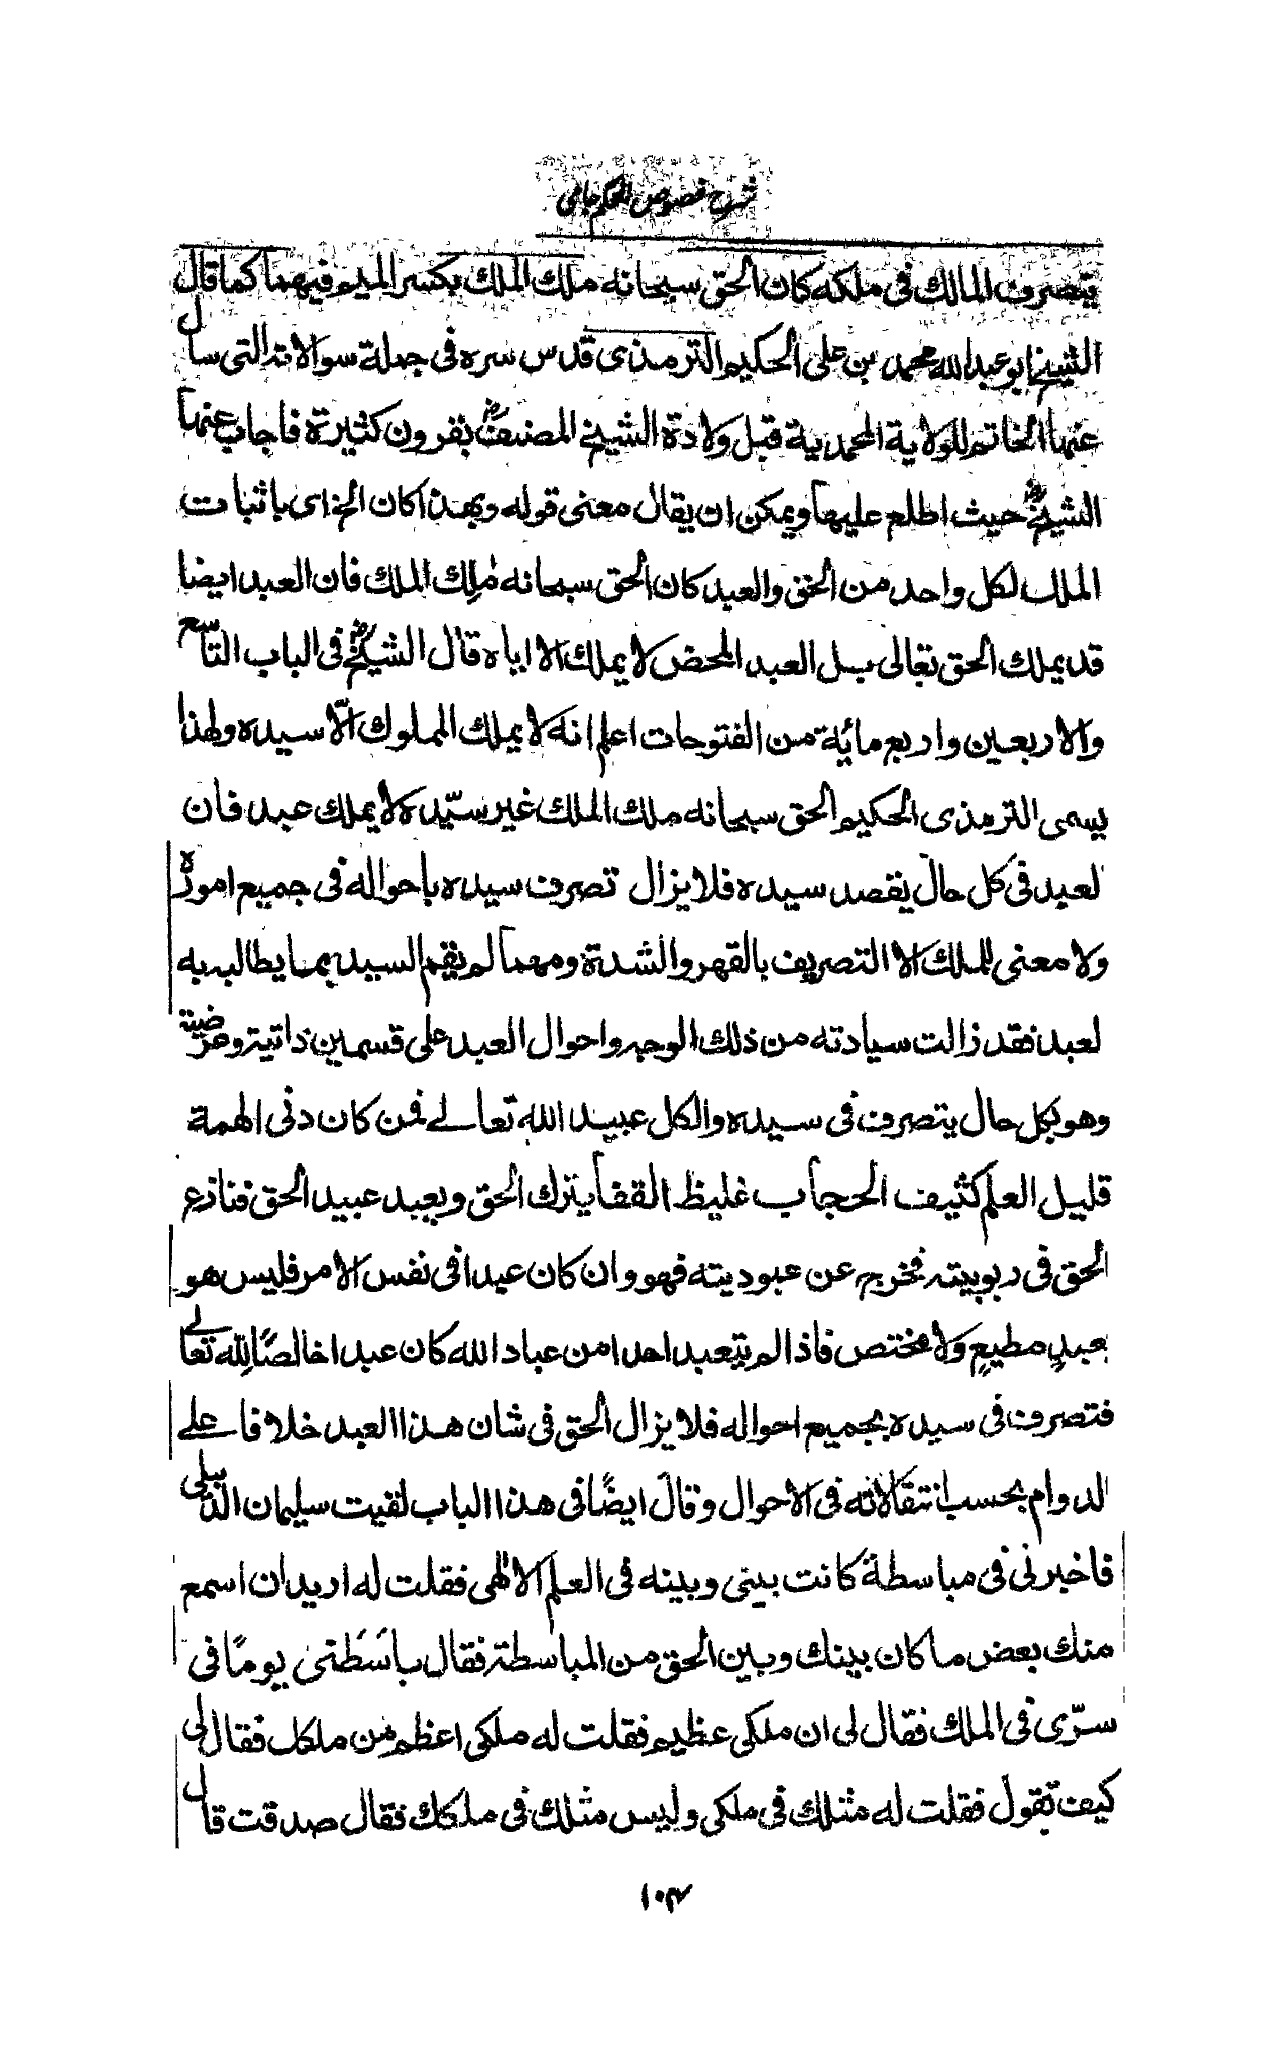 شرح فصوص الحكم جامی
يتصرف المالك فی ملكه كان الحق سبحانه ملك الملك بكسر الميم فيهما كما قال
الشيخ ابو عبد الله محمد بن علی الحكيم الترمذی قدس سره فی جملة سوالاته التی سال
عنها الخاتم للولاية المحمدية قبل ولادة الشيخ المصنف رض بقرون كثيرة فاجاب عنها
الشيخ رض حيث اطلع عليها ويمكن ان يقال معنی قوله وبهذا كان الخ ای باثبات
الملك لكل واحد من الحق والعبد كان الحق سبحانه مُلِك الملك فان العبد ايضا
قد يملك الحق تعالی بل العبد المحض لا يملك الا اياه قال الشيخ رض فی الباب التاسع
والاربعين واربع مائة من الفتوحات اعلم انه لا يملك المملوك الّا سيده ولهذا
يسمی الترمذی الحكيم الحق سبحانه ملك الملك غير سيّده لا يملك عبد فان
لعبد فی كل حال يقصد سيده فلا يزال تصرف سيده باحواله فی جميع اموره
ولا معنی للملك الا التصريف بالقهر والشدة ومهما لم يقم السيد بما يطالبه به
لعبد فقد زالت سيادته من ذلك الوجه واحوال العبد علی قسمين ذاتية وعرضية
وهو بكل حال يتصرف فی سيده والكل عبيد الله تعالے فمن كان دنی الهمة
قليل العلم كثيف الحجاب غليظ القفا يترك الحق ويعبد عبيد الحق فنازع
الحق فی ربوبيته فخرج عن عبوديته فهو وان كان عبدا فی نفس الامر فليس هو
بعبدٍ مطيعٍ وَلا مختص فاذا لم يتعبد احدا من عباد الله كان عبدا خالصًا لِله تعالے
فتصرف فی سيده بجميع احواله فلا يزال الحق فی شان هذا العبد خلاقا علے
الدوام بحسب انتقالاته فی الاحوال وقالَ ايضًا فی هذا الباب لقيت سليمان الدنبلی
فاخبرنی فی مباسطة كانت بينی وبينه فی العلم الالهی فقلت له اريد ان اسمع
منك بعض ما كان بينك وبين الحق من المباسطة فقال باسَطَنی يومًا فی
سرّی فی الملك فقال لی ان ملكی عظيم فقلت له ملكی اعظم من ملكك فقال لی
كيف تقول فقلت له مثلك فی ملكی وليس مثلك فی ملكك فقال صدقت قال
۱۰۴